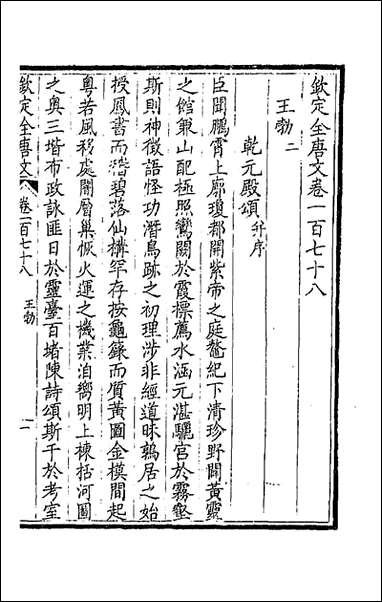 欽定全唐文卷一百七十八
王勃二
乾元殿頌并序
臣聞鵬霄上廓瓊都開紫帝之庭鼇紀下清珍野闢黃靈
之館罩山配極照鸞闕於霞標薦水涵元湛驪宮於霧壑
斯則神徵語怪功潛鳥跡之初理涉非經道昧鶉居之始
授鳳書而潛碧落仙構罕存按龜籙而質黃圖金模間起
粵若風移處闇層巢恢火運之機業洎嚮明上棟括河圖
之奧三階布政詠匪日於靈臺百堵陳詩頌斯干於考室
欽定全唐文 卷一百七十八 王勃 一